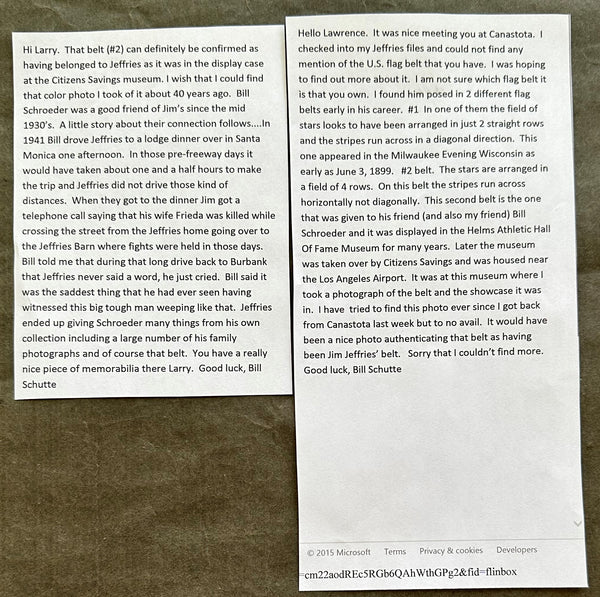 Hi Larry.  That belt (#2) can definitely be confirmed as
having belonged to Jeffries as it was in the display case
at the Citizens Savings museum. I wish that I could find
that color photo I took of it about 40 years ago.  Bill
Schroeder was a good friend of Jim's since the mid
1930's.  A little story about their connection follows....In
1941 Bill drove Jeffries to a lodge dinner over in Santa
Monica one afternoon.  In those pre-freeway days it
would have taken about one and a half hours to make
the trip and Jeffries did not drive those kind of
distances.  When they got to the dinner Jim got a
telephone call saying that his wife Frieda was killed while
crossing the street from the Jeffries home going over to
the Jeffries Barn where fights were held in those days.
Bill told me that during that long drive back to Burbank
that Jeffries never said a word, he just cried.  Bill said it
was the saddest thing that he had ever seen having
witnessed this big tough man weeping like that.  Jeffries
ended up giving Schroeder many things from his own
collection including a large number of his family
photographs and of course that belt.  You have a really
nice piece of memorabilia there Larry.  Good luck, Bill
Schutte
Hello Lawrence.  It was nice meeting you at Canastota.  I
checked into my Jeffries files and could not find any
mention of the U.S. flag belt that you have.  I was hoping
to find out more about it.  I am not sure which flag belt it
is that you own.  I found him posed in 2 different flag
belts early in his career.  #1  In one of them the field of
stars looks to have been arranged in just 2 straight rows
and the stripes run across in a diagonal direction.  This
one appeared in the Milwaukee Evening Wisconsin as
early as June 3, 1899.   #2 belt.  The stars are arranged in
a field of 4 rows.  On this belt the stripes run across
horizontally not diagonally.  This second belt is the one
that was given to his friend (and also my friend) Bill
Schroeder and it was displayed in the Helms Athletic Hall
Of Fame Museum for many years.  Later the museum
was taken over by Citizens Savings and was housed near
the Los Angeles Airport.  It was at this museum where I
took a photograph of the belt and the showcase it was
in.  I have  tried to find this photo ever since I got back
from Canastota last week but to no avail.  It would have
been a nice photo authenticating that belt as having
been Jim Jeffries' belt.   Sorry that I couldn't find more.
Good luck, Bill Schutte
© 2015 Microsoft Terms Privacy & cookies Developers
=cm22aodREc5RGb6QAhWthGPg2&fid=flinbox